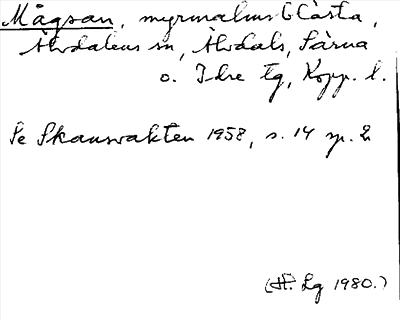 Mågsan, myrmalens blåsta,
Älvdalens sn, Älvdals, Särna
o. Idre tg, Kopp. l.
Se Skansvakten 1958, s. 14 sp. 2
(H. Lg 1980.)